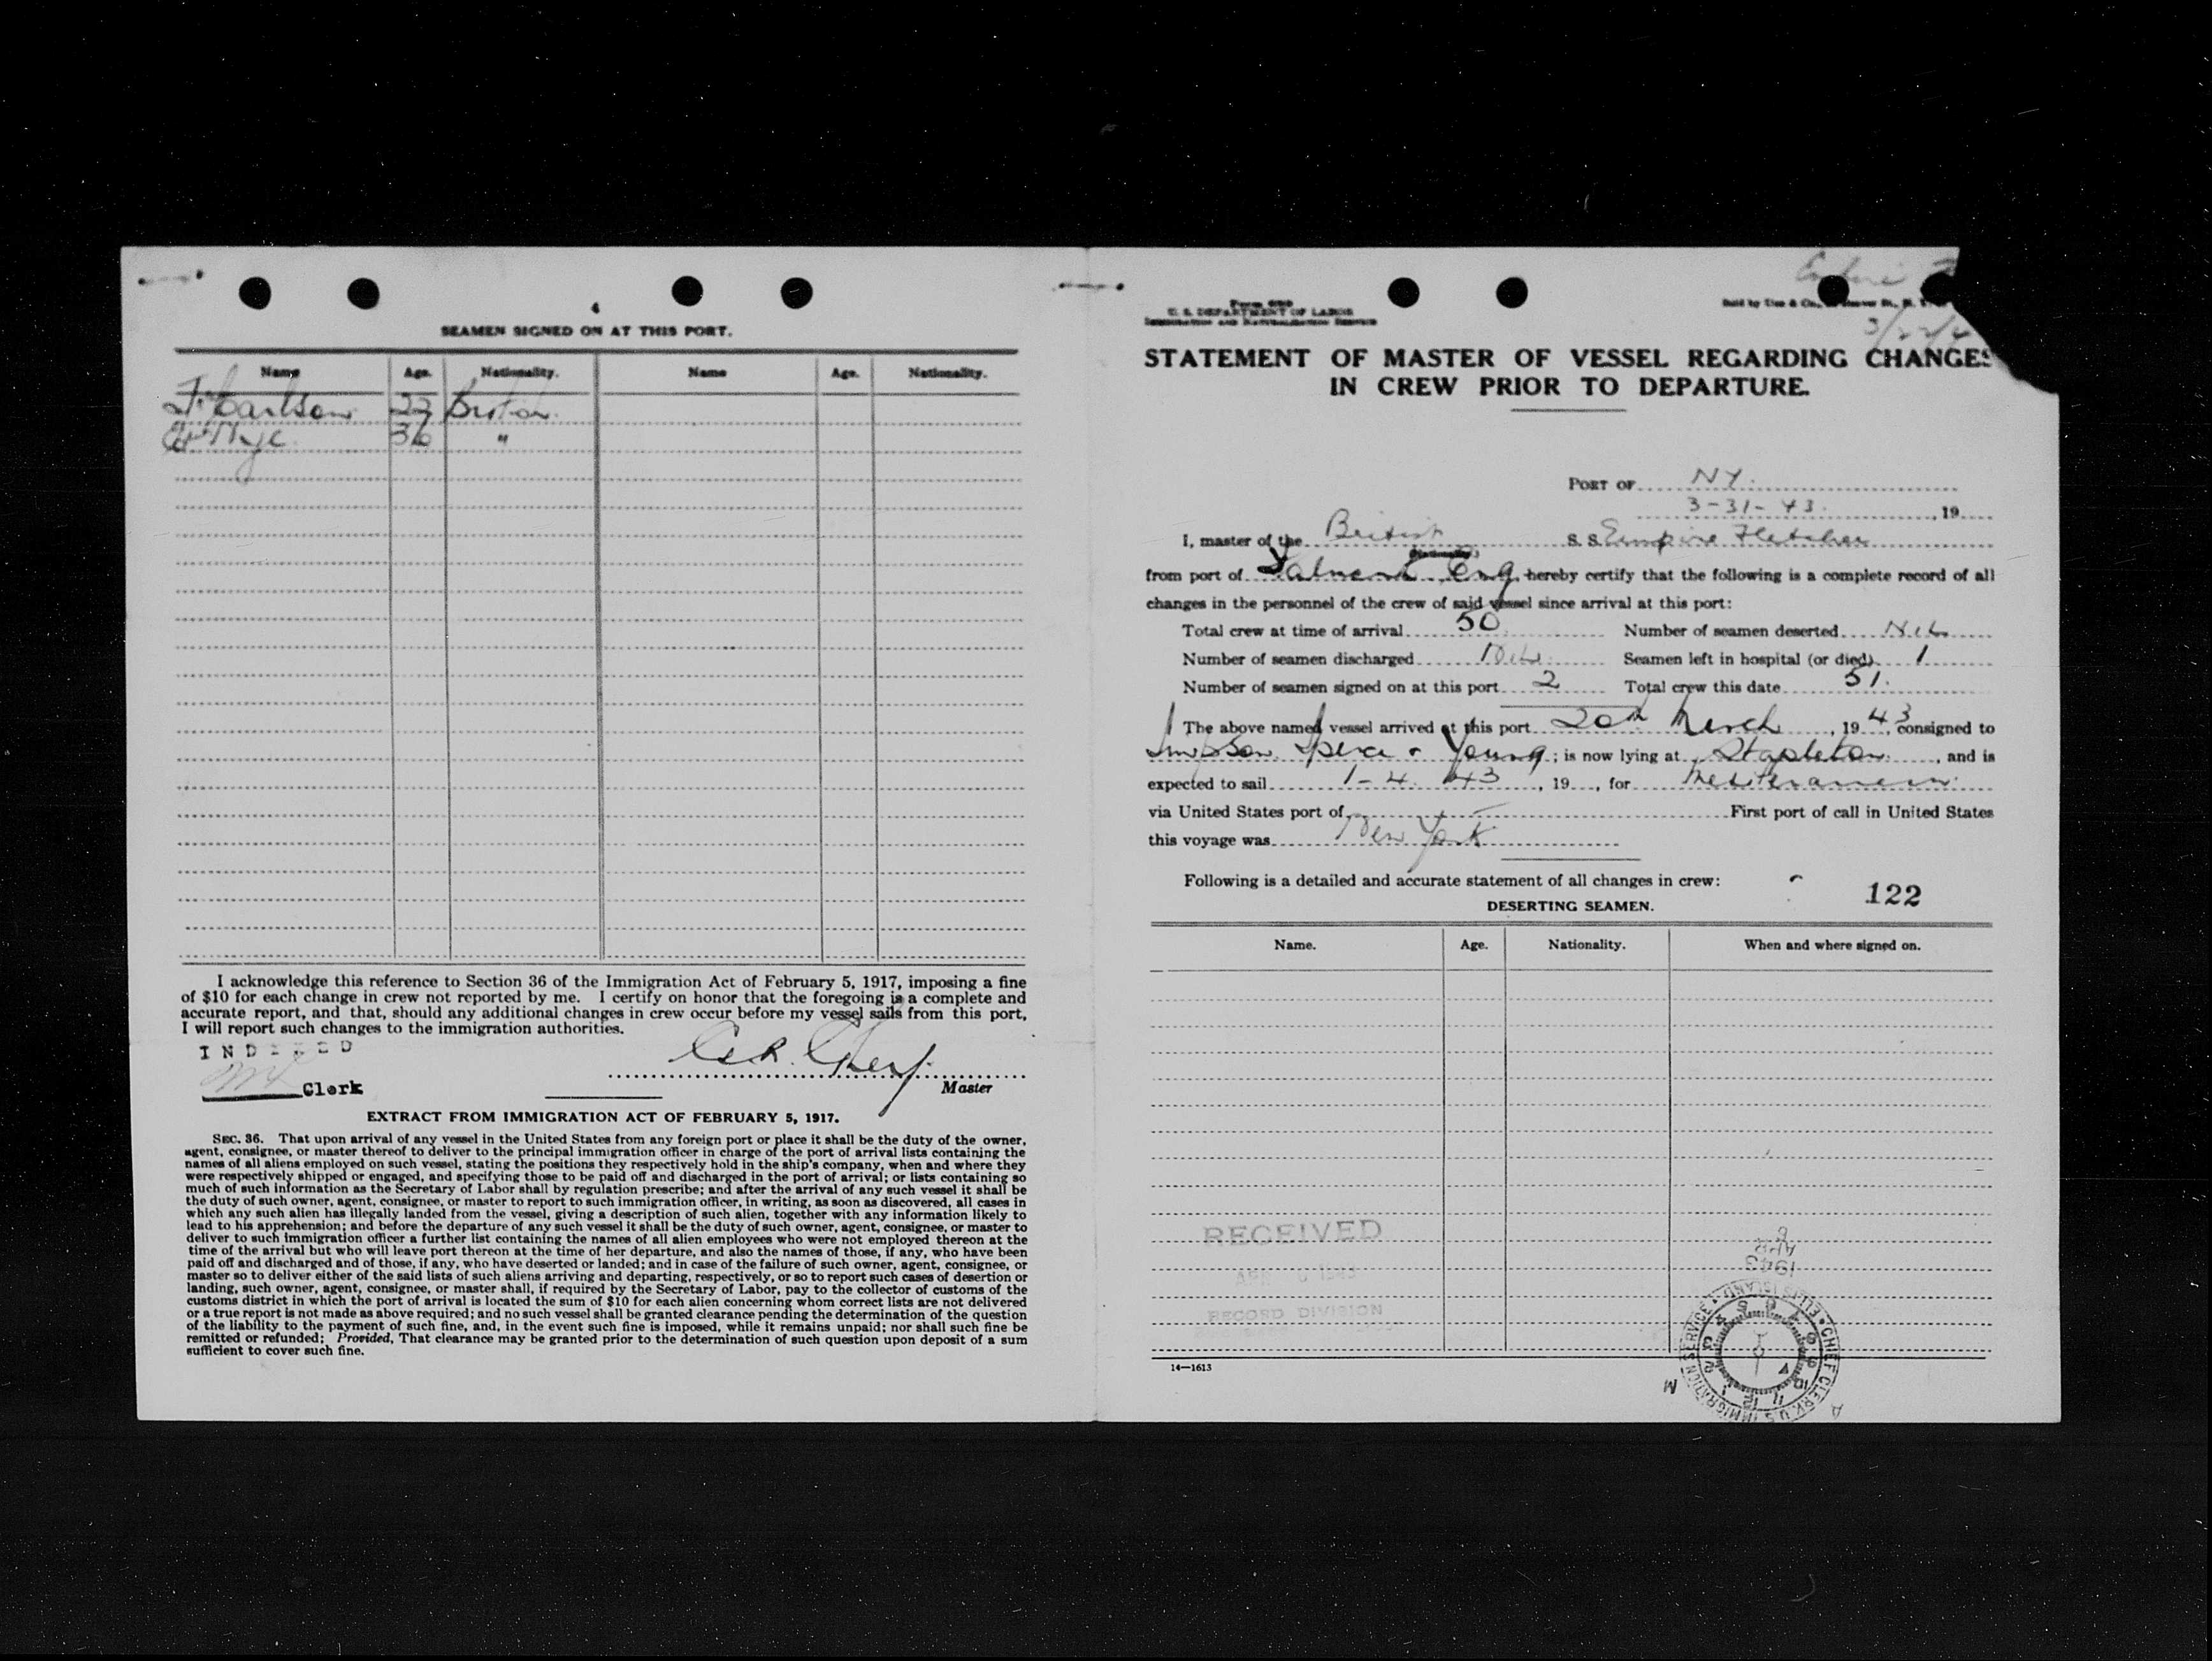 4
SEAMEN SIGNED ON AT THIS PORT.
Name Age. Nationality. Name Age. Nationality.
Carlson 22 British
36 "
I acknowledge this reference to Section 36 of the Immigration Act of February 5, 1917, imposing a fine
of $10 for each change in crew not reported by me. I certify on honor that the foregoing is a complete and
accurate report, and that, should any additional changes in crew occur before my vessel sails from this port,
I will report such changes to the immigration authorities.
INDEXED
Clerk
Master
EXTRACT FROM IMMIGRATION ACT OF FEBRUARY 5, 1917.
SEC. 36. That upon arrival of any vessel in the United States from any foreign port or place it shall be the duty of the owner,
agent, consignee, or master thereof to deliver to the principal immigration officer in charge of the port of arrival lists containing the
names of all aliens employed on such vessel, stating the positions they respectively hold in the ship's company, when and where they
were respectively shipped or engaged, and specifying those to be paid off and discharged in the port of arrival; or lists containing so
much of such information as the Secretary of Labor shall by regulation prescribe; and after the arrival of any such vessel it shall be
the duty of such owner, agent, consignee, or master to report to such immigration officer, in writing, as soon as discovered, all cases in
which any such alien has illegally landed from the vessel, giving a description of such alien, together with any information likely to
lead to his apprehension; and before the departure of any such vessel it shall be the duty of such owner, agent, consignee, or master to
deliver to such immigration officer a further list containing the names of all alien employees who were not employed thereon at the
time of the arrival but who will leave port thereon at the time of her departure, and also the names of those, if any, who have been
paid off and discharged and of those, if any, who have deserted or landed; and in case of the failure of such owner, agent, consignee, or
master so to deliver either of the said lists of such aliens arriving and departing, respectively, or so to report such cases of desertion or
landing, such owner, agent, consignee, or master shall, if required by the Secretary of Labor, pay to the collector of customs of the
customs district in which the port of arrival is located the sum of $10 for each alien concerning whom correct lists are not delivered
or a true report is not made as above required; and no such vessel shall be granted clearance pending the determination of the question
of the liability to the payment of such fine, and, in the event such fine is imposed, while it remains unpaid; nor shall such fine be
remitted or refunded; Provided, That clearance may be granted prior to the determination of such question upon deposit of a sum
sufficient to cover such fine.
U. S. DEPARTMENT OF LABOR
IMMIGRATION AND NATURALIZATION SERVICE
STATEMENT OF MASTER OF VESSEL REGARDING CHANGES
IN CREW PRIOR TO DEPARTURE.
PORT OF NY.
3-31-43. , 19
I, master of the British S. S. Empire Fletcher
(Nationality)
from port of Eng. hereby certify that the following is a complete record of all
changes in the personnel of the crew of said vessel since arrival at this port:
Total crew at time of arrival 50 Number of seamen deserted NIL
Number of seamen discharged NIL Seamen left in hospital (or died) 1
Number of seamen signed on at this port 2 Total crew this date 51.
The above named vessel arrived at this port 20th March , 1943, consigned to
Simpson Spence & Young; is now lying at Stapleton , and is
expected to sail 1-4. 43 , 19 , for Mediteranean
via United States port of — First port of call in United States
this voyage was New York
Following is a detailed and accurate statement of all changes in crew:
122
DESERTING SEAMEN.
Name. Age. Nationality. When and where signed on.
RECEIVED
APR 1943
RECORD DIVISION
APR 1943
CHIEF CLERK U.S. IMMIGRATION SERVICE • ELLIS ISLAND
14—1613